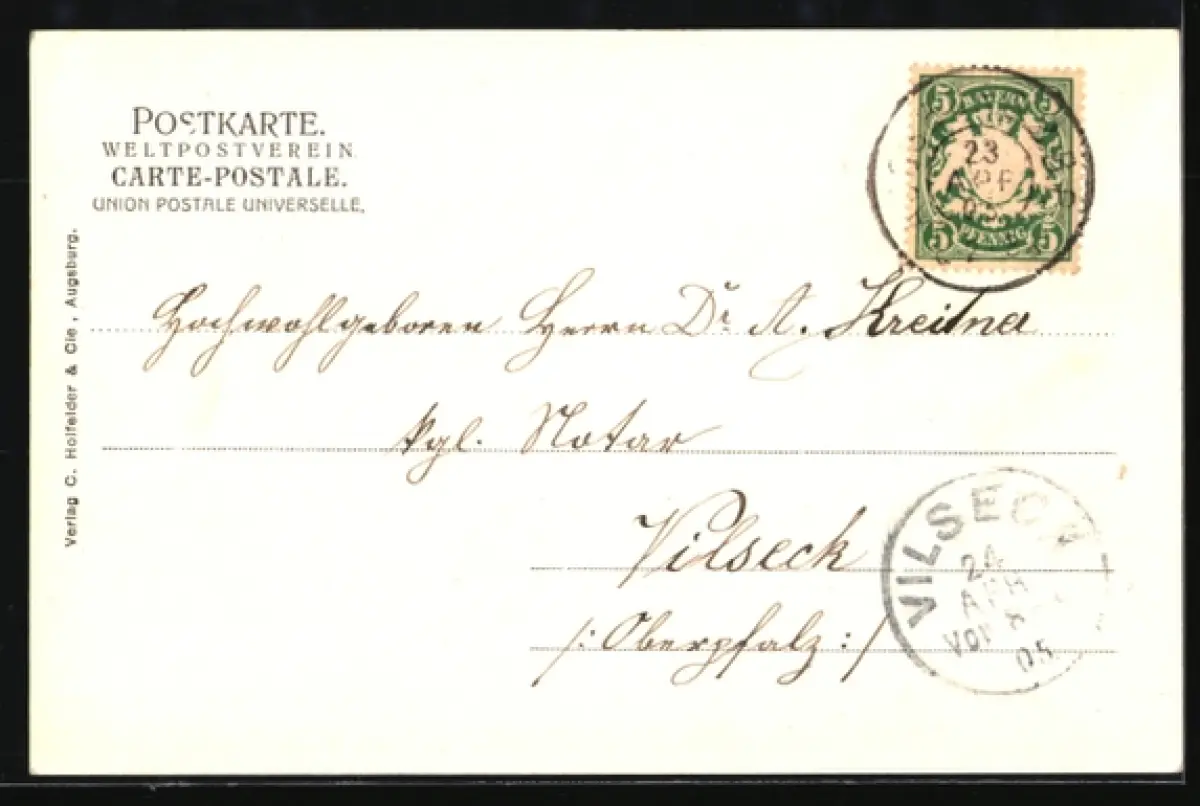 POSTKARTE.
WELTPOSTVEREIN
CARTE-POSTALE.
UNION POSTALE UNIVERSELLE.
Verlag C. Holfelder & Cie, Augsburg.
5 BAYERN 5
23
APR
05
5 PFENNIG 5
Hochwohlgeboren Herrn Dr. A. Kreitner
kgl. Notar
Vilseck
/: Oberpfalz :/
VILSECK
24
APR
VOR 8
05